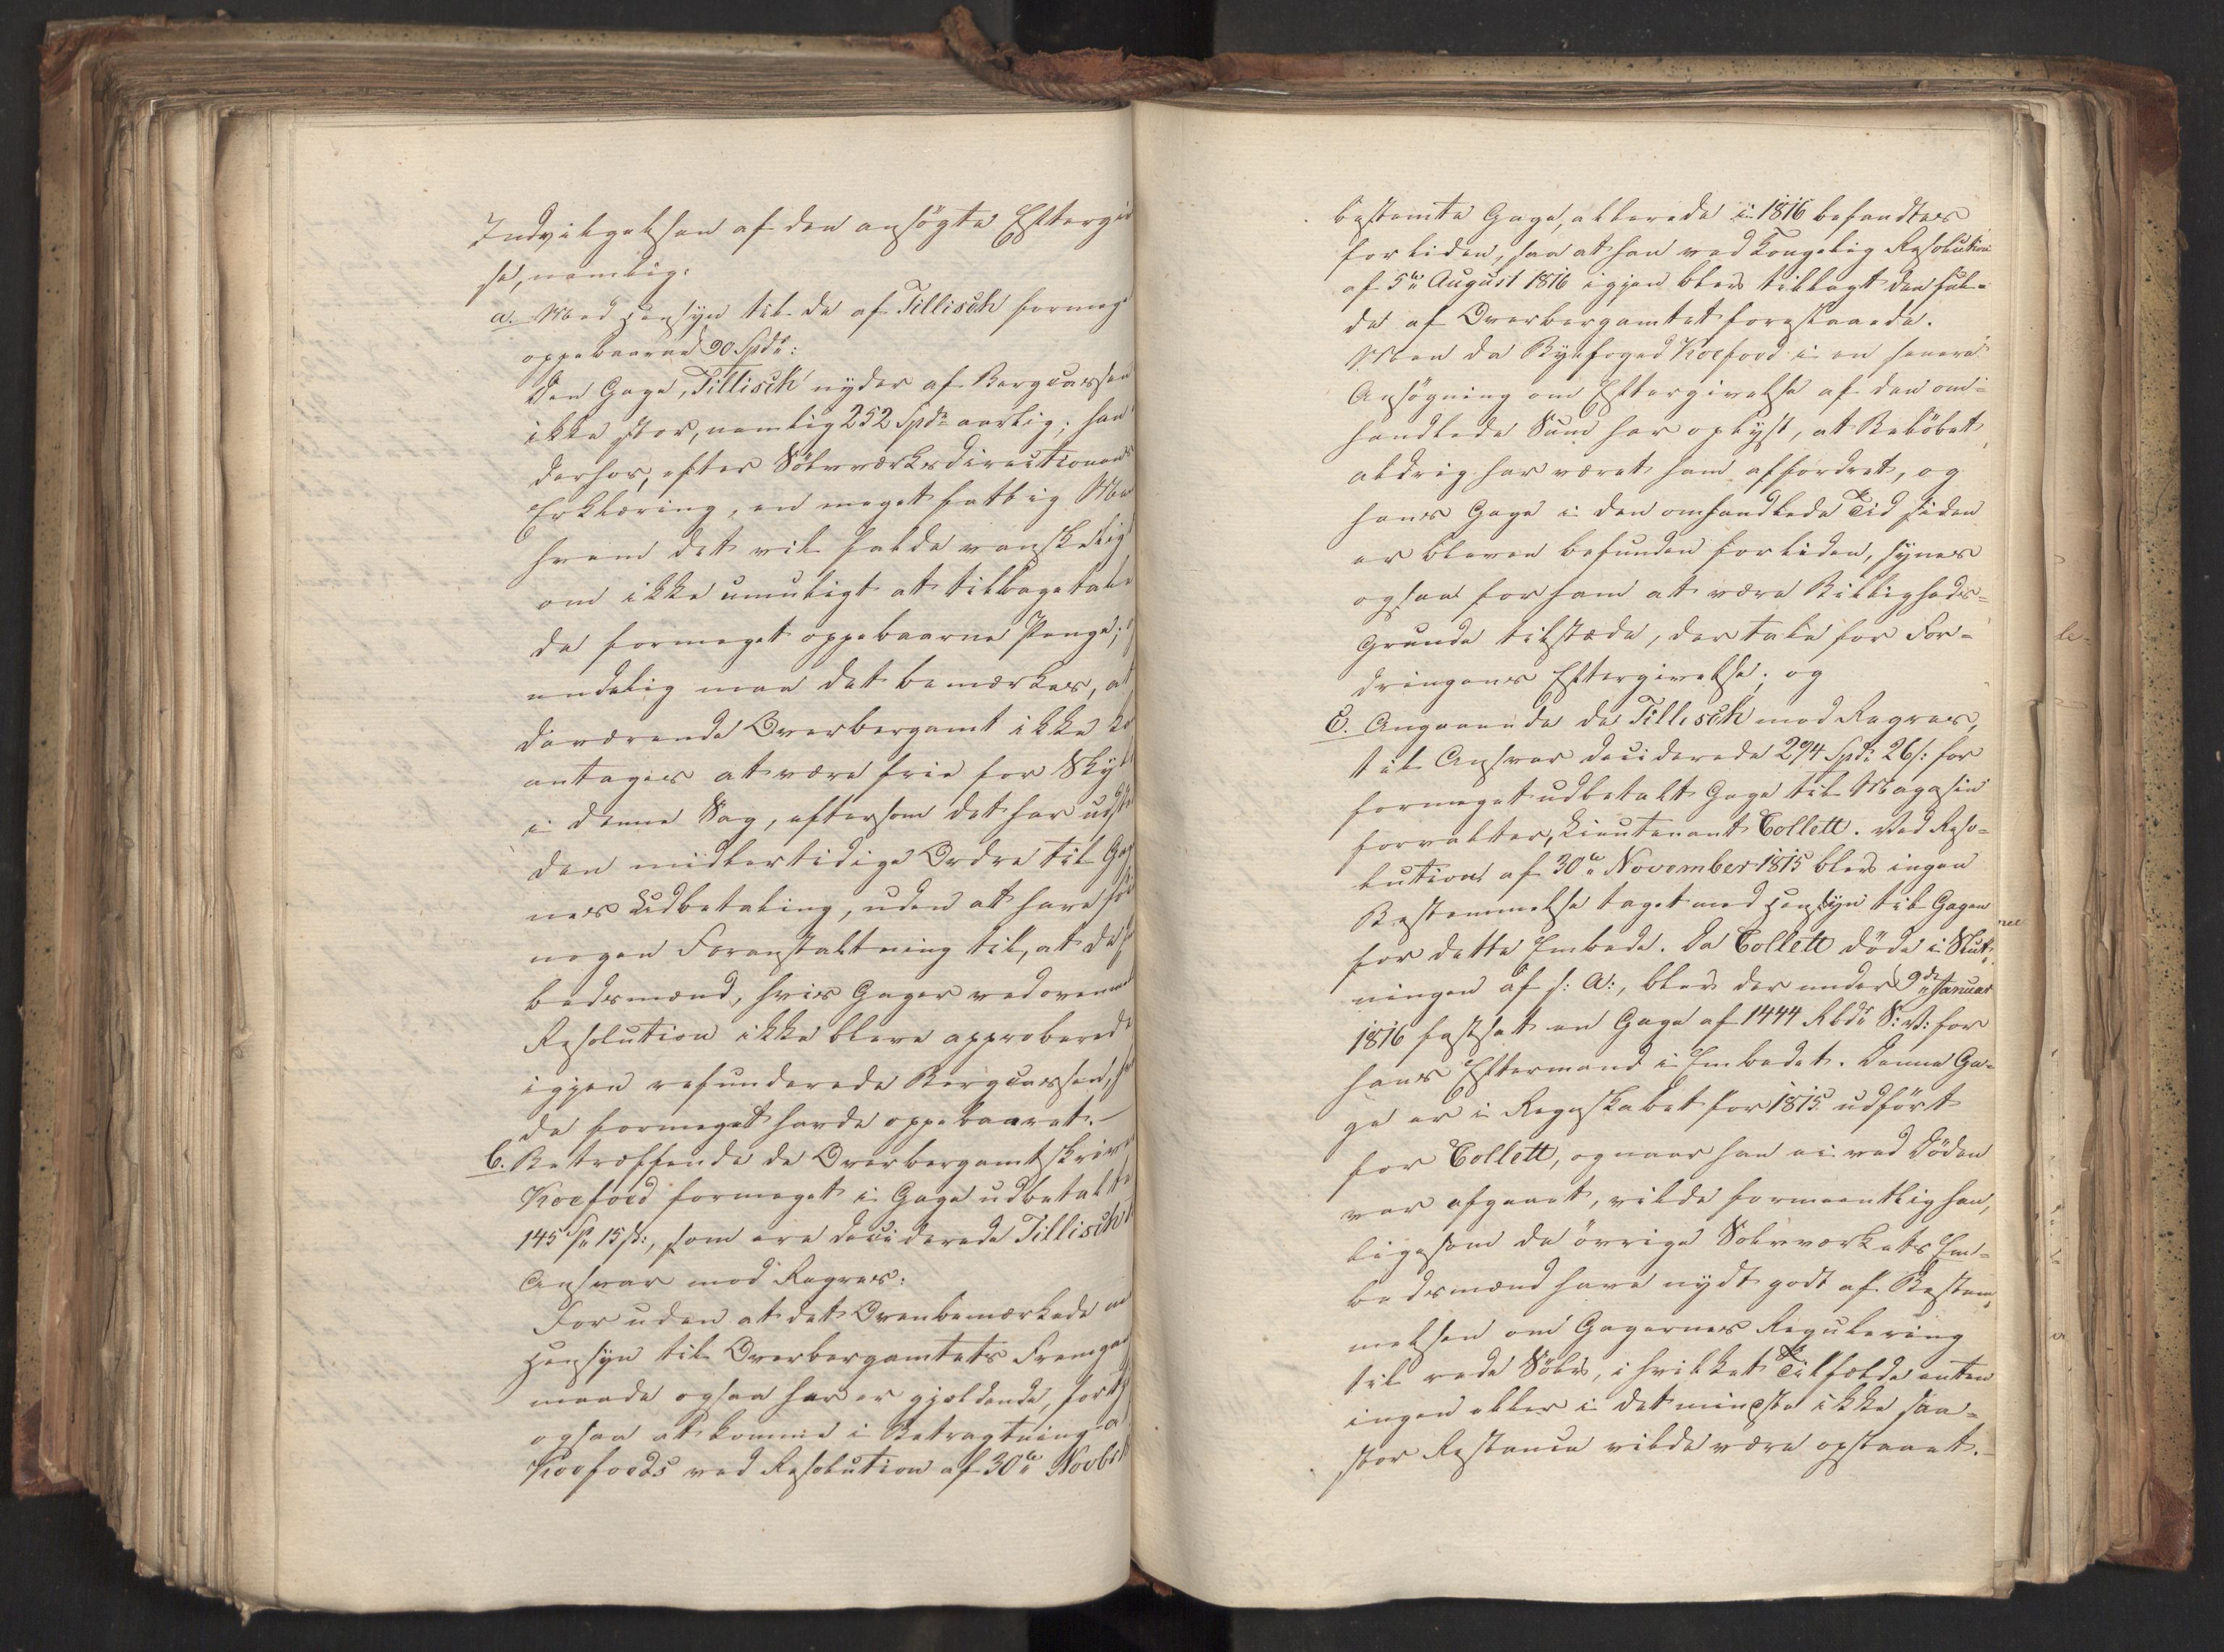 Indvilgelsen af den ansögte Eftergiv
se, nemlig:
a. Med Hensyn til de af Tillisch formeget
oppebaarne 90 Spdr:
Den Gage, Tillisch nyder af Bergcassen
ikke stor, nemlig 252 Spdr aarlig; han
derhos, efter Sölvværksdirectionens
Erklæring, en meget fattig Man
hvem det vil falde vanskeligt
om ikke umuligt at tilbagetale
de formeget oppebaarne Penge;
endelig maa det bemærkes, at
daværende Overbergamt ikke ka
antages at være frie for Skyld
i denne Sag, eftersom det har udst
den midlertidige Ordre til Gag
nes Udbetaling, uden at have
nogen Foranstaltning til, at de
bedsmænd, hvis Gager ved ovenm
Resolution ikke bleve approberede
igjen refunderede Bergcassen,
de formeget havde oppebaaret.
b. Betræffende de Overbergamtskriver
Koefoed formeget i Gage udbetalte
145 Sp 15 ß:, som ere deciderede Tillisch
Ansvar mod Regres:
For uden at det Ovenbemærkede m
Hensyn til Overbergamtets Fremgan
maade ogsaa her er gjeldende, fortj
ogsaa at komme i Betragtning a
Koefoeds ved Resolution af 30te Novbr
bestemte Gage, allerede in 1816 befandtes
for liden, saa at han ved Kongelig Resolution
af 5te August 1816 igjen blev tillagt den ful-
de af Overbergamtet forestaaede.
Men da Byefoged Koefoed i en senere
Ansögning om Eftergivelse af den om-
handlede Sum har oplyst, at Belöbet
aldrig har været ham affordret, og
hans Gage i den omhandlede Tid siden
er bleven befunden for liden, synes
ogsaa for ham at være Billigheds-
Grunde tilstæde, der tale for For-
dringens Eftergivelse; og
c. Angaaende de Tillisch mod Regres,
til Ansvar deciderede 294 Spdr 26 ß: for
formeget udbetalt Gage til Magasin
forvalter, Lieutenant Collett. Ved Reso-
lution af 30te November 1815 blev ingen
Bestemmelse taget med Hensyn til Gagen
for dette Embede. Da Collett döde i Slut-
ningen af s: A:, blev der under 9de Januar
1816 fastsat en Gage af 1444 Rbdr S: V: for
hans Eftermand i Embedet. Denne Ga-
ge er i Regnskabet for 1815 udfört
for Collett, og naar han ei ved Döden
var afgaaet, vilde formeentlig han,
ligesom de övrige Sölvværkets Em-
bedsmænd have nydt godt af Bestem-
melsen om Gagernes Regulering
til rede Sölv, i hvilket Tilfælde enten
ingen eller i det mindste ikke saa-
stor Restance vilde være opstaaet.